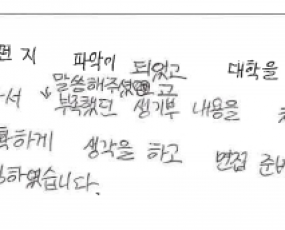 떤지 파악이 되었고 대학을
말씀해주셨고
서 부족했던 생기부 내용을
확하게 생각을 하고 면접 준비
하였습니다.